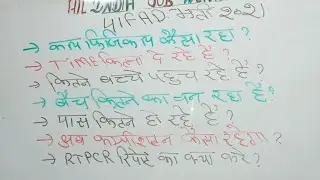 ALL INDIA JOB
UFHAD भर्ती 2021
→ कल फिजिकल कैसा रहा ?
→ TIME कितना दे रहे हैं ?
→ कितने बच्चे पहुंच रहे हैं ?
→ बैच कितने का बन रहा है ?
→ पास कितने हो रहे हैं ?
→ अब कम्पीटीशन कैसा रहेगा ?
→ RTPCR रिपोर्ट का क्या करें ?